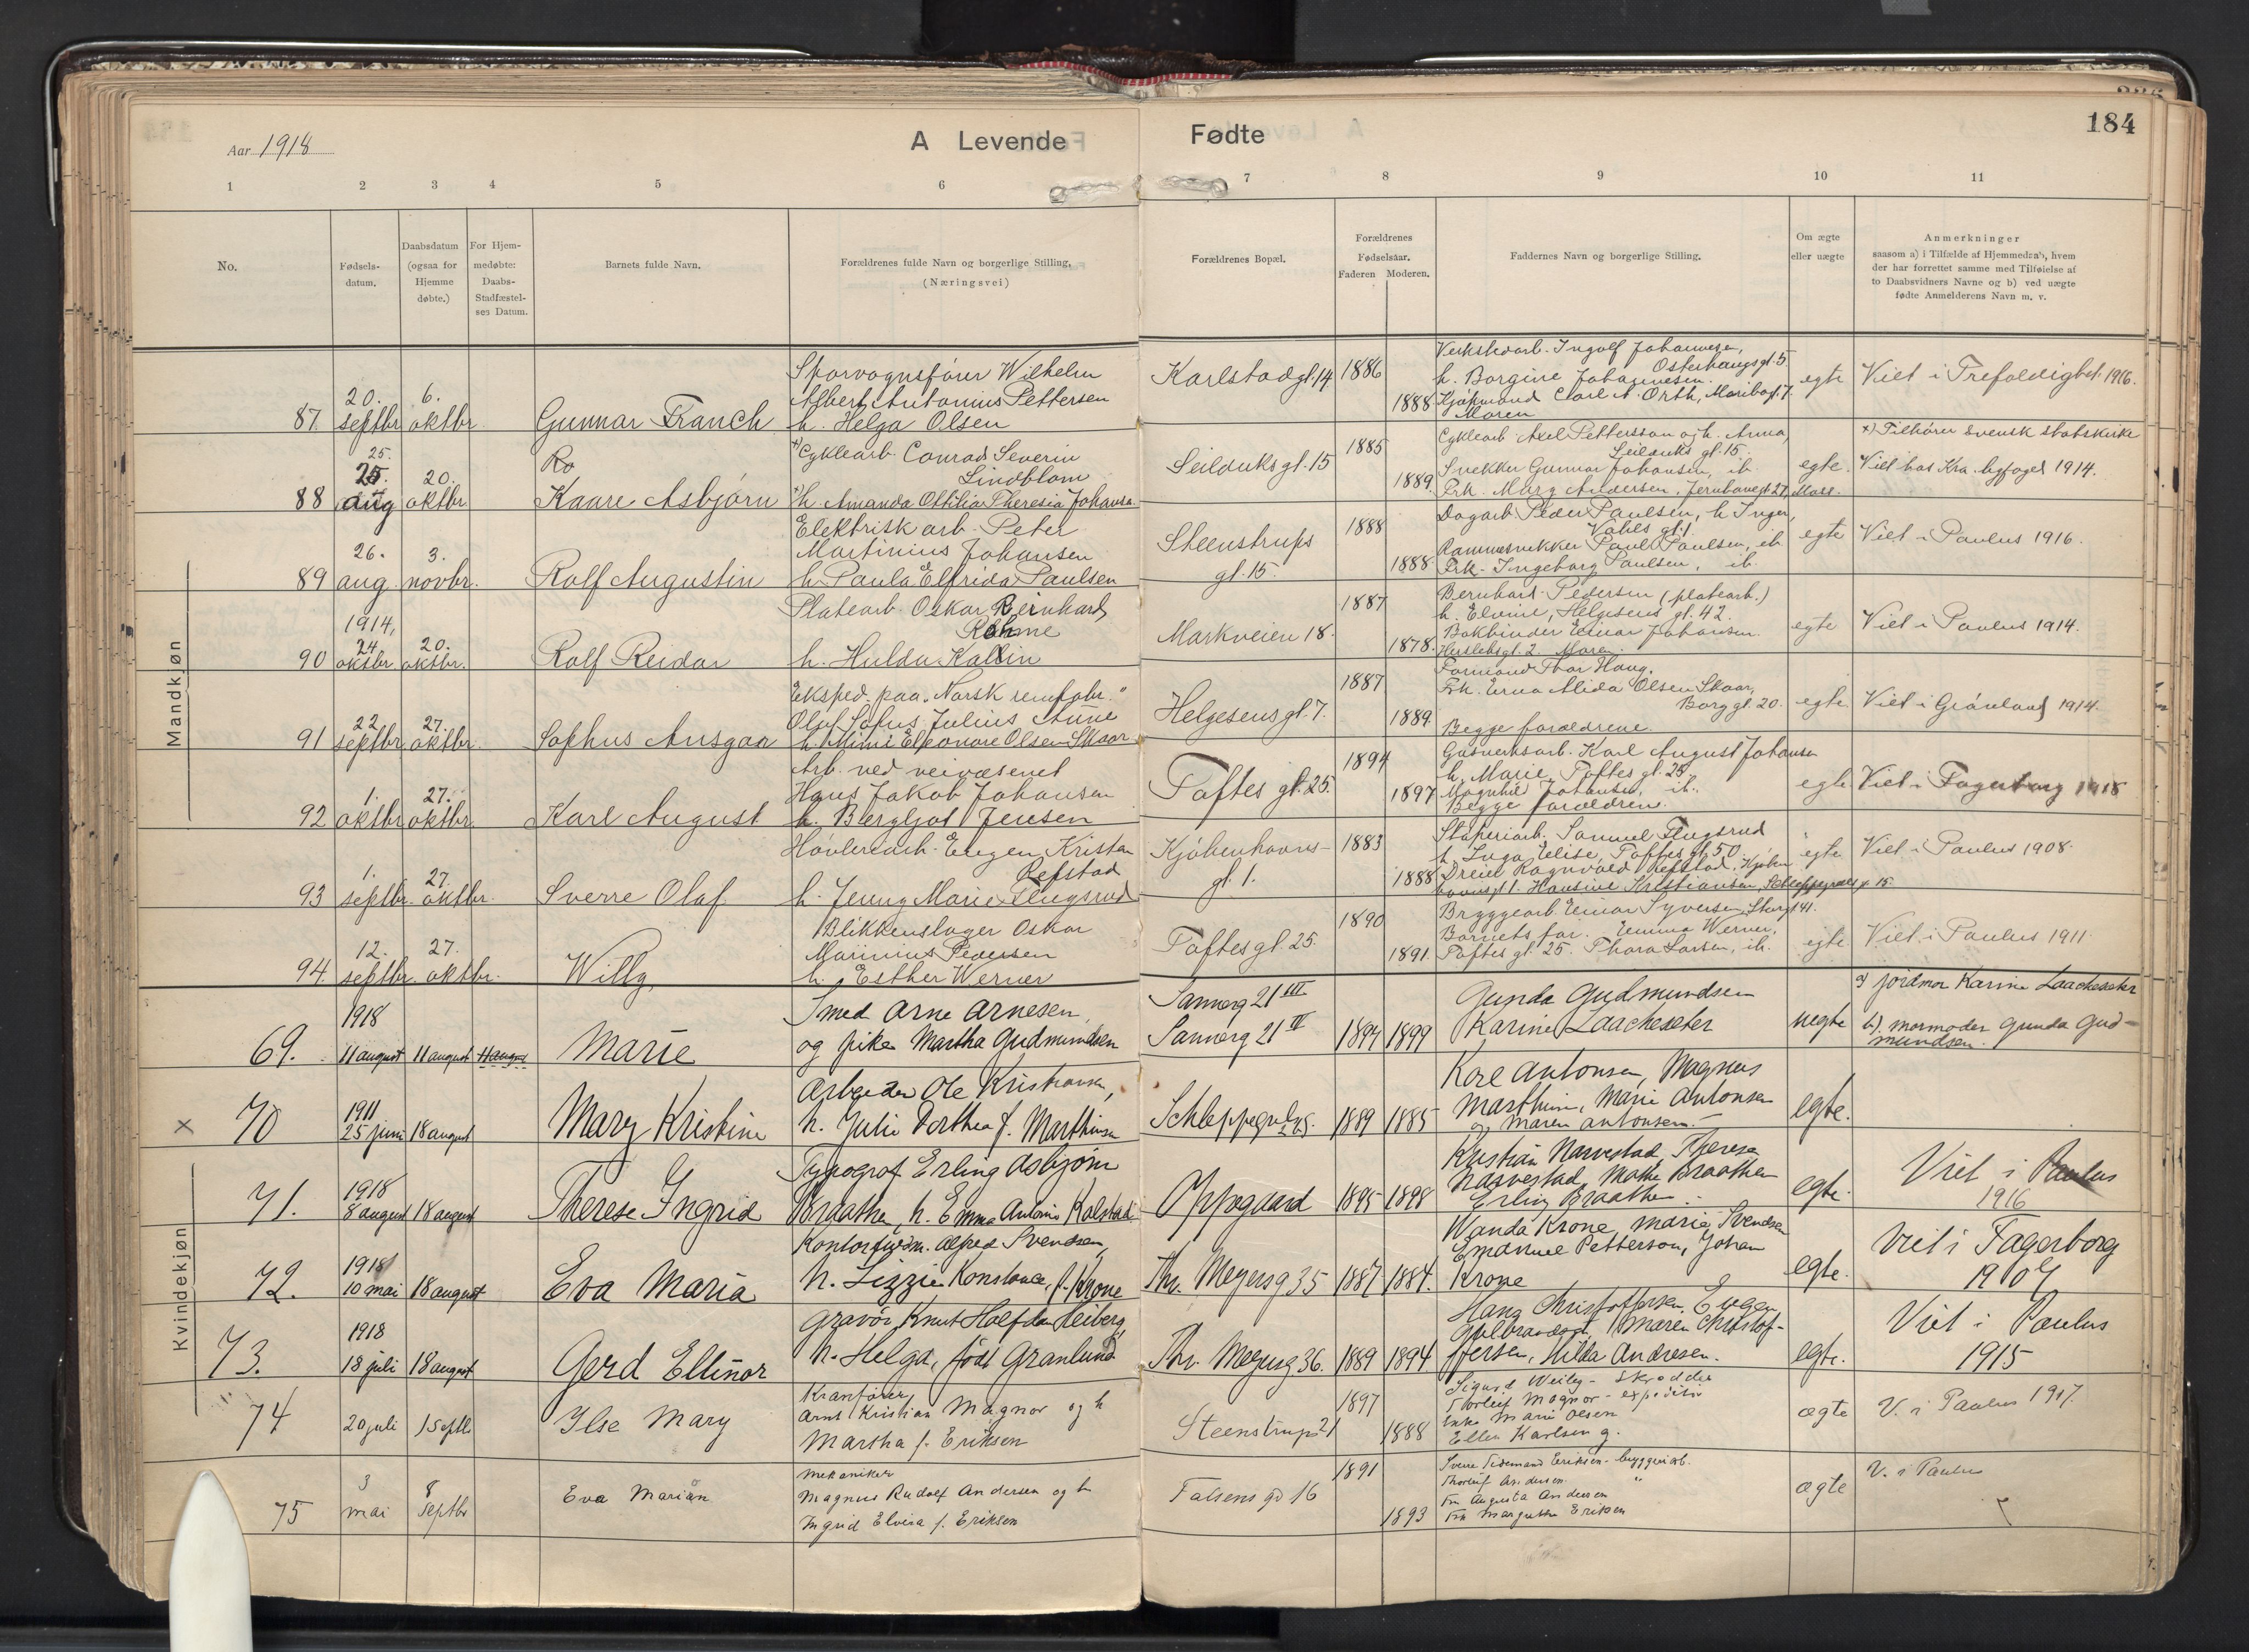 184
Aar 1918
A Levende Fødte
1 2 3 4 5 6 7 8 9 10 11
No.
Fødsels-
datum.
Daabsdatum
(ogsaa for
Hjemme
døbte.)
For Hjem-
medøbte:
Daabs-
Stadfæstel-
ses Datum.
Barnets fulde Navn.
Forældrenes fulde Navn og borgerlige Stilling.
(Næringsvei)
Forældrenes Bopæl.
Forældrenes
Fødselsaar.
Faderen Moderen.
Faddernes Navn og borgerlige Stilling.
Om ægte
eller uægte
Anmerkninger
saasom a) i Tilfælde af Hjemmedaab, hvem
der har forrettet samme med Tilføielse af
to Daabsvidners Navne og b) ved uægte
fødte Anmelderens Navn m. v.
Mandkjøn
87
20.
septbr
6.
oktbr
Gunnar Franch
Sporvognsfører Wilhelm
Albert Antonius Pettersen
h. Helga Olsen
Karlstadgt. 14
1886
1888
Verkstedarb. Ingolf Johannesen,
Osterhausgt. 5
h. Borgine Johannesen
Kjøbmand Carl A. Orth, Maribogt. 7.
Maren
egte
Viet i Trefoldighet. 1916.
88
25.
25.
aug
20.
oktbr
Ro
Kaare Asbjørn
x) Cyklearb. Conrad Severin
Lindblom
h. Amanda Ottilia Theresia Johansen
Seilduksgt. 15
1885
1889.
Cyklearb. Axel Pettersson og h. Anna,
Seilduksgt. 15.
Snekker Gunnar Johansen, ib.
Frk. Mary Andersen, Jernbanegt. 27, Moss.
egte.
x) Tilhører Svensk statskirke
Viet hos Kra. byfoged 1914.
89
26.
aug.
3.
novbr.
Rolf Augustin
Elektrisk arb. Peter
Martinius Johansen
h. Paula Elfrida Paulsen
Steenstrups
gt. 15.
1888
1888
Dagarb. Peder Paulsen, h. Inger,
Vahls gt. 1.
Rammesnekker Paul Paulsen, ib.
Frk. Ingeborg Paulsen, ib.
egte
Viet i Paulus 1916.
90
1914,
24.
oktbr
20.
oktbr.
Rolf Reidar
Platearb. Oskar Reinhard
Røhme
h. Hulda Kallin
Markveien 18.
1887
1878.
Bernhard Pedersen (platearb.)
h. Elvine, Helgesens gt. 42.
Bokbinder Einar Johansen
Herslebsgt. 2. Maren.
egte
Viet i Paulus 1914.
91
22
septbr.
27.
oktbr.
Sophus Ansgar
Eksped. paa "Norsk remfabr."
Olaf Sofus Julius Aune
h. Mimi Eleonore Olsen Skaar
Helgesensgt. 7.
1887
1889.
Formand Thor Haug.
Frk. Erna Alida Olsen Skaar,
Borg gt. 20.
Begge forældrene.
egte
Viet i Grønland 1914.
92
1.
oktbr.
27.
oktbr.
Karl August
Arb. ved veivæsenet
Hans Jakob Johansen
h. Bergljot Jensen
Toftes gt. 25.
1894
1897
Gasverksarb. Karl August Johansen
h. Marie, Toftes gt. 25.
Magnhild Johansen, ib.
Begge forældrene.
egte
Viet i Fagerborg 1918
93
1.
septbr.
27.
oktbr.
Sverre Olaf
Høvlereiarb. Eugen Kristen
Refstad
h. Jenny Marie Flugsrud
Kjøbenhavns-
gt. 1.
1883
1888
Støperiarb. Samuel Flugsrud
h. Inga Elise, Toftes gt. 50.
Dreier Ragnvald Refstad, Kjøben-
havnsgt. 1. Hansine Kristiansen, Schleppegrells g. 15
egte
Viet i Paulus 1908.
94.
12.
septbr.
27.
oktbr.
Willy,
Blikkenslager Oskar
Marinius Pedersen
h. Esther Werner
Toftesgt. 25.
1890
1891.
Bryggearb. Einar Syversen, Storgt. 41.
Barnets far. Emma Werner,
Toftes gt. 25. Thora Larsen, ib.
egte
Viet i Paulus 1911.
Kvindekjøn
69.
1918
11 august
11 august
11 august
Marie
Smed Arne Arnesen,
og pike Martha Gudmundsen
Sannerg 21 III
Sannerg 21 IV
1894
1899
Gunda Gudmundsen
Karine Laacheseter
uegte
a) jordmor Karine Laacheseter
b). mormoder Gunda Gud-
mundsen.
x
70
1911
25 juni
18 august
Mary Kristine
Arbeider Ole Kristiansen,
h. Julie Dorthea f. Marthinsen
Schleppegrelsg.
1889
1885
Karl Antonsen, Magnus
Marthins, Marie Antonsen
og Maren Antonsen.
egte.
71.
1918
8 august
18 august
Therese Ingrid
Typograf Erling Asbjørn
Braathen, h. Emma Antonie Kolstad
Oppegaard
1895
1898
Kristian Narvestad, Therese
Narvestad, Mathe Braathen
Erling Braathen.
egte.
Viet i Paulus
1916
72.
1918
10 mai
18 august
Eva Maria
Kontorfuldm. Alfred Svendsen,
h. Lizzie Konstance, f. Krone
Thv. Meyersg 35
1887
1884.
Wanda Krone, Marie Svendsen
Emanuel Petterson, Johan
Krone
egte.
Viet i Fagerborg
1907
73.
1918
18 juli
18 august
Gerd Ellinor
Gravør Knut Halfdan Heiberg,
h. Helga, født Granlund
Thv. Meyersg 36.
1889
1894
Hans Christoffersen, Eugen
Gulbrandsen, Maren Christof-
fersen, Hilda Andresen.
egte.
Viet i Paulus
1915
74
20 juli
1 Septb
Ilse Mary
Kranfører
Arnt Kristian Magnor og h
Martha f. Eriksen
Steenstrups 21
1897
1888
Sigurd Weiby - Skrædder
Thorleif Magnor - expeditør
Enke Marie Olsen
Ellen Karlsen g.
ægte
V. i Paulus 1917.
75
3
mai
8
Septbr
Eva Marian
Mekaniker
Magnus Rudolf Andersen og h
Ingrid Elvira f. Eriksen
Falsens gd 16
1891
1893
Sverre Tidemand Eriksen - bryggeriarb.
Thorleif Andersen "
Fru Augusta Andersen
Fru Margrethe Eriksen
ægte
V. i Paulus